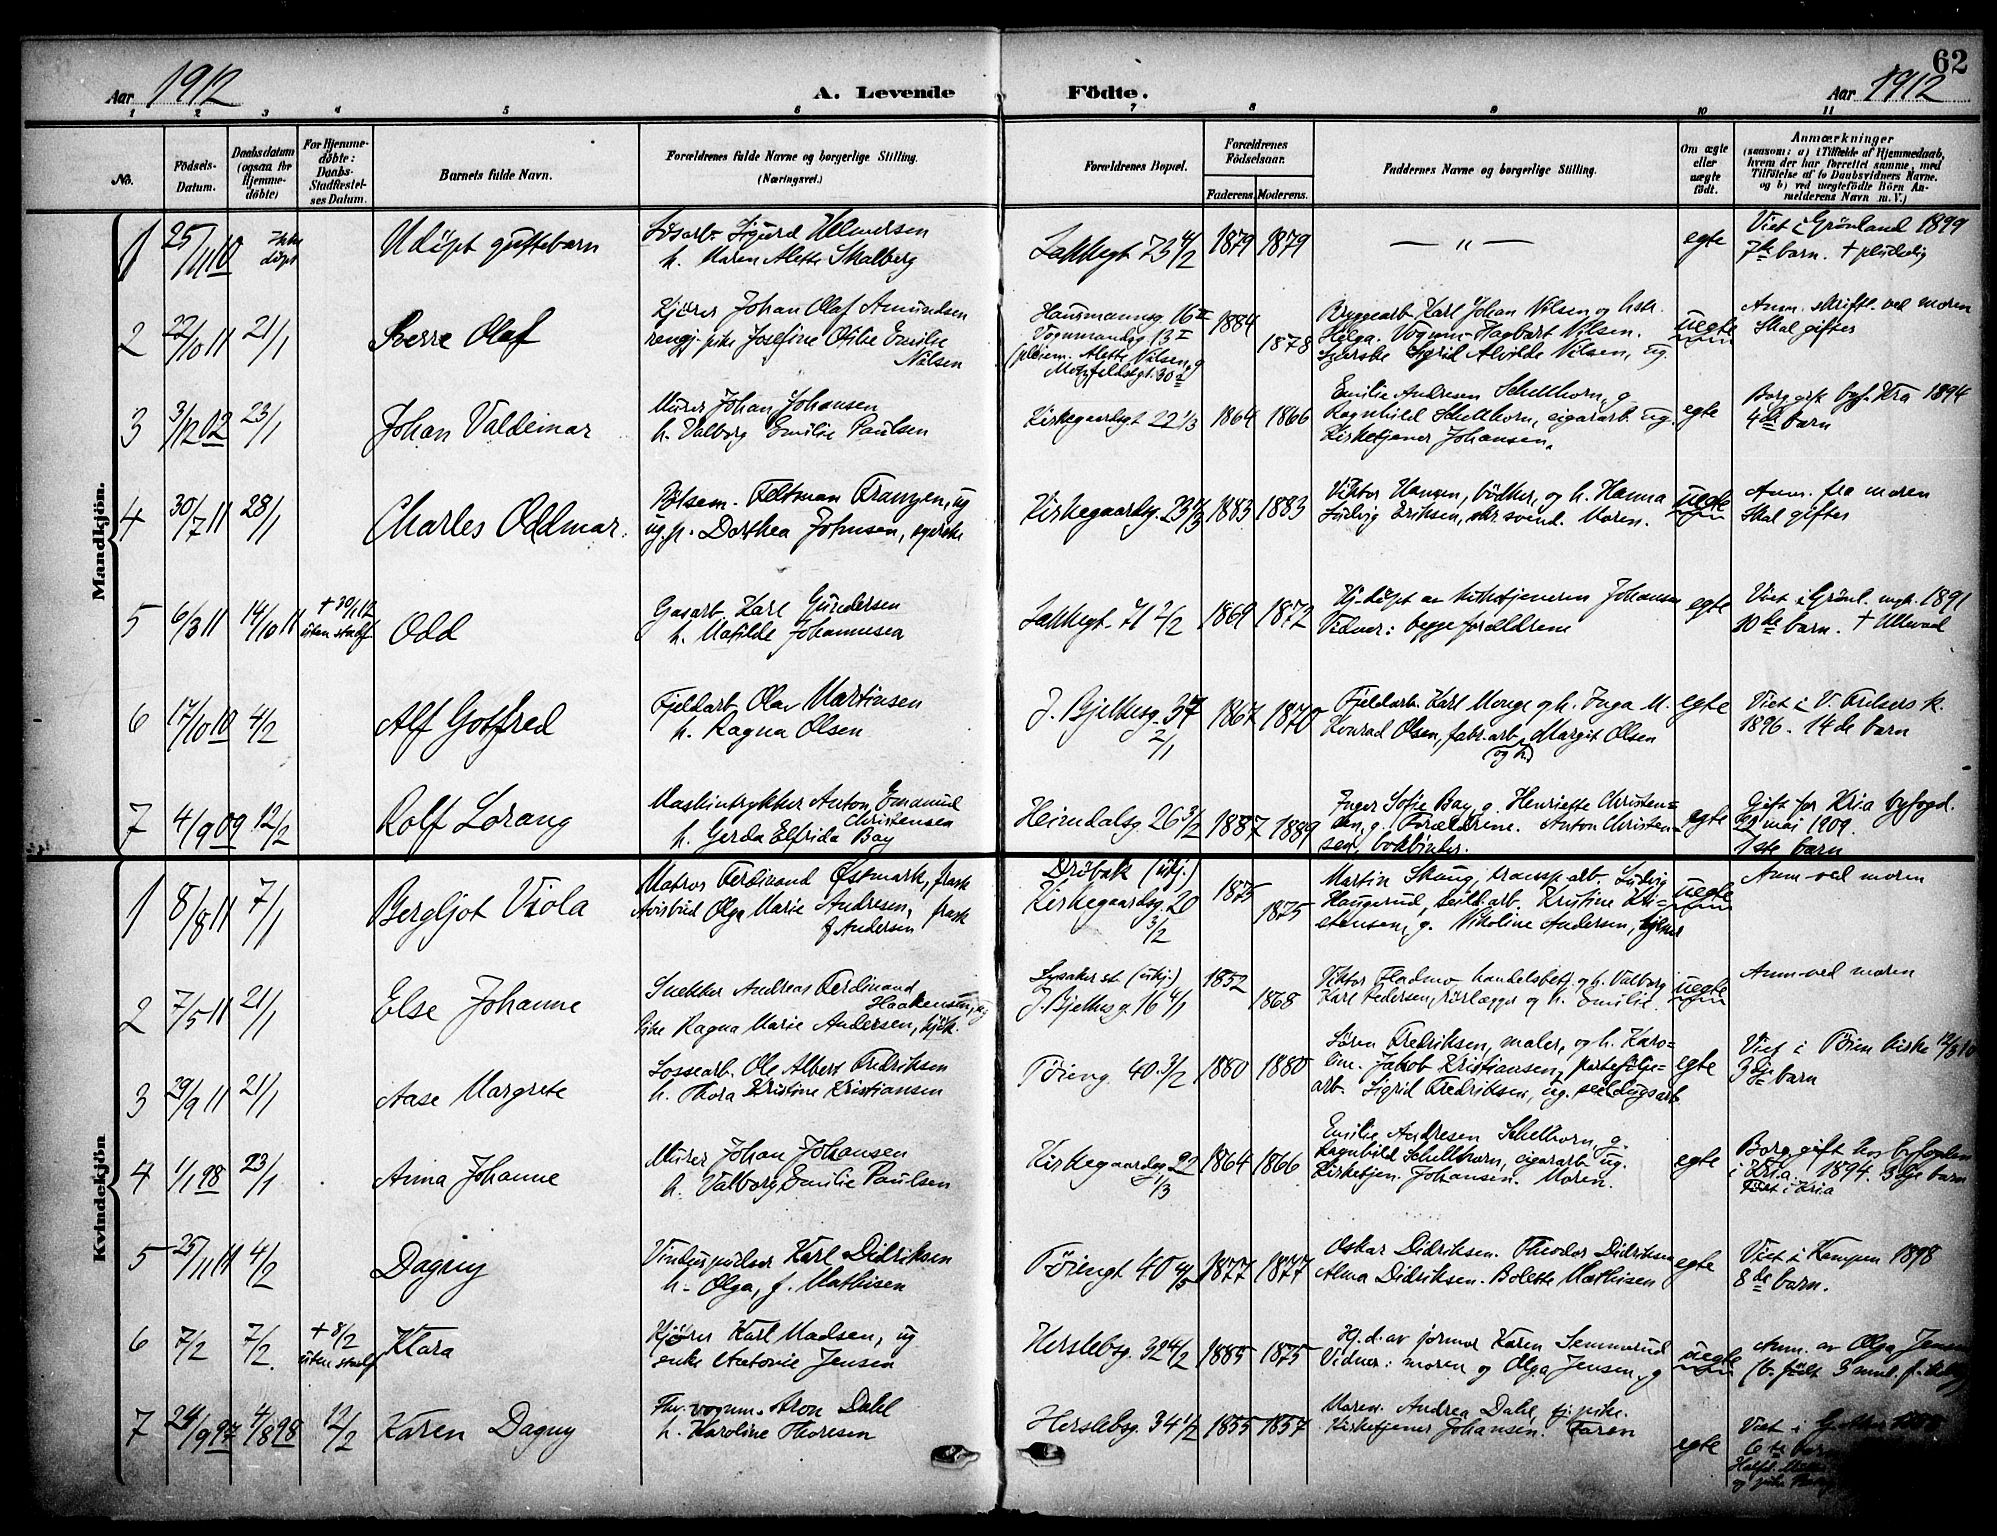 62
Aar 1912
A. Levende Födte.
Aar 1912
1 2 3 4 5 6 7 8 9 10 11
No.
Födsels-Datum.
Daabsdatum (ogsaa for Hjemmedöbte)
For Hjemmedöbte: Daabs-Stadfæstelses Datum.
Barnets fulde Navn.
Forældrenes fulde Navne og borgerlige Stilling. (Næringsvei.)
Forældrenes Bopæl.
Forældrenes Födselsaar.
Faderens. Moderens.
Faddernes Navne og borgerlige Stilling.
Om ægte eller uægte födt.
Anmærkninger
(saasom: a) i Tilfælde af Hjemmedaab,
hvem der har forrettet samme, med
Tilföielse af to Daabsvidners Navne.
og b) ved uegtefödte Börn An-
melderens Navn m. V.)
Mandkjön.
1 25/11 10 Ikke döpt Udöpt guttebarn
Sigurd Hilmersen
h. Maren Alette Skalberg
Lakkegt 73 4/2 1879 1879 — „ — egte
Viet i Grönland 1899
7de barn. + pludselig
2 22/10 11 21/1 Sverre Olaf
Kjörer Johan Olaf Amundsen
rengj. pike Josefine Otilie Emilie
Nilsen
Hausmannsg. 16 II
Vognmandsg 13 II
(pleiem. Alette Nilsen, g
Motzfeldtsgt. 30
1884 1878
Bryggearb Karl Johan Nilsen og hstr.
Helga. Vognm. Hagbart Nilsen.
Syerske Sigrid Alvilde Nilsen, ug.
uegte
Anm. skriftl. ved moren
Skal giftes
3 3/12 02 23/1 Johan Valdemar
Murer Johan Johansen
h. Valborg Emilie Paulsen
Kirkegaardsgt 22 1/3 1864 1866
Emilie Andresen Schelhorn, g
Ragnhild Schellhorn, cigararb. ug.
Kirketjener Johansen.
egte
Borg. gift byf. Kra 1894
4de barn
4 30/7 11 28/1 Charles Oddmar.
Pölsem. Feltman Franzen, ug
ug. p. Dorthea Johnsen, syerske
Kirkegaardsg. 23 4/3 1883 1883
Viktor Hansen, bödker, og h. Hanna
Ludvig Eriksen, skr.svend. Moren.
uegte
Anm. fra moren
Skal giftes
5 6/3 11 14/10 11 + 30/1 12 uten stadf Odd
Gasarb Karl Gundersen
h. Matilde Johannesen
Lakkegt 71 2/2 1869 1872
Hj. döpt av kirketjeneren Johansen
Vidner: begge forældrene
egte
Viet i Grönl. 1891
10de barn. + Ullevaal
6 17/10 10 4/2 Alf Gotfred
Fjeldarb Olav Martinsen
h. Ragna Olsen
J. Bjelkesg. 37 2/1 1867 1870
Fjeldarb. Karl Monge og h. Inga M.
Konrad Olsen, fabr.arb. Margit Olsen
egte
Viet i V. Frelsers k.
1896. 14de barn
7 4/9 09 12/2 Rolf Lorang
Maskintrykker Anton Emanuel
Christensen
h. Gerda Elfrida Bay
Heimdalsg. 26 3/2 1887 1889
Inger Sofie Bay, g. Henriette Christen=
sen, g. Forældrene. Anton Christen=
sen, bokbinder.
egte
Gift for Kria byfogd.
22 mai 1909.
1ste barn
Kvindekjön
1 8/8 11 7/1 Bergljot Viola
Matros Ferdinand Östmark, frask
Avisbud Olga Marie Andresen, frask
f. Andersen
Dröbak (ukj.)
Kirkegaardsg. 20 3/2
1875 1875
Martin Skaug, transp.arb. Ludvig
Haugerud, seild.arb. Kristine Kri=
stensen, g. Nikoline Andersen,
uegte
Anm. ved moren
2 7/5 11 21/1 Else Johanne
Snekker Andreas Ferdinand
Haakensen, ug
Pike Ragna Marie Andersen,
Lysaker st. (ukj.)
J. Bjelkesg. 16 4/1
1852 1868
Viktor Flodmo handelsbetj. og h. Valborg
Karl Pedersen, rörlægger og h. Emilie.
uegte
Anm. ved moren
3 29/9 11 21/1 Aase Margrete
Lossearb. Ole Albert Fredriksen
h. Thora Kristine Kristiansen
Töieng. 40 3/2 1880 1880
Sören Fredriksen, maler, og h. Karo=
line. Jakob Kristiansen, portefölje=
arb. Sigrid Fredriksen, ug. seildugsarb.
egte
Viet i Töien kirke 12/8 10
3dje barn
4 1/1 98 23/1 Anna Johanne
Murer Johan Johansen
h. Valborg Emilie Paulsen
Kirkegaardsg 22 1/3 1864 1866
Emilie Andresen Schelhorn, g.
Ragnhild Schellhorn, cigararb. ug.
Kirketjen. Johansen. Moren.
egte
Borg. gift hos byfogden
i Kria. 1894. 3dje barn
Födt i Kria
5 25/11 11 4/2 Dagny
Vinduspudser Karl Didriksen
h. Olga, f. Mathisen
Töiengt 40 1877 1877
Oskar Didriksen. Theodor Didriksen
Alma Didriksen. Bolette Mathisen
egte
Viet i Kampen 1898
8de barn.
6 7/2 7/2. + 8/2 uten stadf Klara
Kjörer Karl Madsen, ug
enke Antonie Jensen
Herslebsg. 32 4/2 1885 1875
Hj. d. av jormor Karen Semmerud
Vidner: moren og Olga Jensen, g
uegte
Anm. av Olga Jensen
(b. födt 3 mnd.
7 24/9 97 4/8 98 12/2 Karen Dagny
Fhv. vognm. Aron Dahl
h. Karoline Thoresen
Herslebsg. 34 1/2 1855 1857
Moren. Andrea Dahl, tj.pike.
Kirketjener Johansen. Faren
egte
Viet i
6te barn